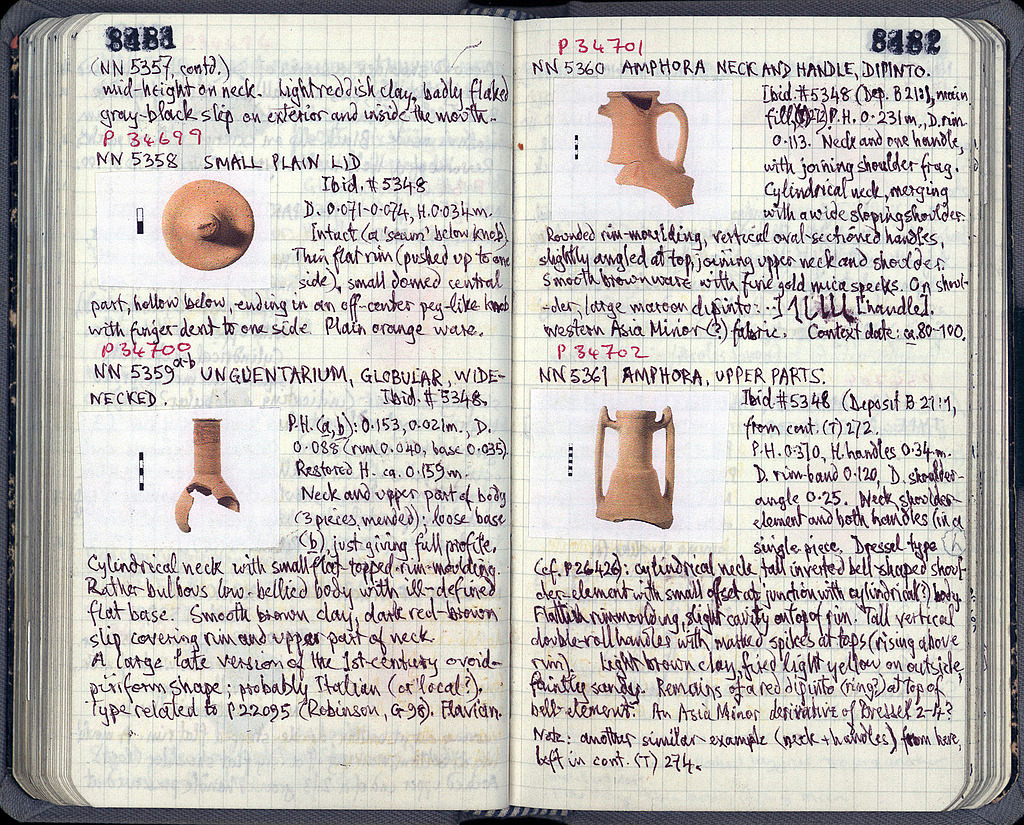 8181
(NN 5357, contd.)
mid-height on neck. Light reddish clay, badly flaked
gray-black slip on exterior and inside the mouth.
P 34699
NN 5358 SMALL PLAIN LID
Ibid. #5348
D. 0.071-0.074, H. 0.034m.
Intact (a 'seam' below knob).
Thin flat rim (pushed up to one
side), small domed central
part, hollow below, ending in an off-center peg-like knob
with finger dent to one side. Plain orange ware.
P 34700
NN 5359 a-b UNGUENTARIUM, GLOBULAR, WIDE-
NECKED. Ibid. #5348.
P.H. (a, b): 0.153, 0.021m., D.
0.088 (rim 0.040, base 0.035).
Restored H. ca. 0.159m.
Neck and upper part of body
(3 pieces, mended); loose base
(b) just giving full profile.
Cylindrical neck with small flat-topped rim-moulding.
Rather bulbous low-bellied body with ill-defined
flat base. Smooth brown clay, dark red-brown
slip covering rim and upper part of neck.
A large late version of the 1st-century ovoid-
piriform shape; probably Italian (or local?).
Type related to P 22095 (Robinson, G 98). Flavian.
8182
P 34701
NN 5360 AMPHORA NECK AND HANDLE, DIPINTO.
Ibid. #5348 (Dep. B 21:1), main
fill, 272) P.H. 0.231m., D. rim
0.113. Neck and one handle,
with joining shoulder frag.
Cylindrical neck, merging
with a wide sloping shoulder.
Rounded rim-moulding, vertical oval-sectioned handles,
slightly angled at top, joining upper neck and shoulder.
Smooth brown ware with fine gold mica specks. On shoul-
-der, large maroon dipinto: [handle].
Western Asia Minor (?) fabric. Context date: ca. 80-100.
P 34702
NN 5361 AMPHORA, UPPER PARTS.
Ibid #5348 (Deposit B 21:1,
from cont. (T) 272.
P.H. 0.370, H. handles 0.34m.
D. rim-band 0.120, D. shoulder-
angle 0.25. Neck, shoulder-
element and both handles (in a
single piece. Dressel type
(cf. P 26426): cylindrical neck, tall inverted bell-shaped shoul-
der-element with small offset at junction with cylindrical(?) body.
Flattish rim moulding, slight cavity on top of rim. Tall vertical
double-roll handles with marked spikes at tops (rising above
rim). Light brown clay, fired light yellow on outside,
faintly sandy. Remains of a red dipinto (ring?) at top of
bell-element. An Asia Minor derivative of Dressel 2-4?
Note: another similar example (neck + handles) from here,
left in cont. (T) 274.